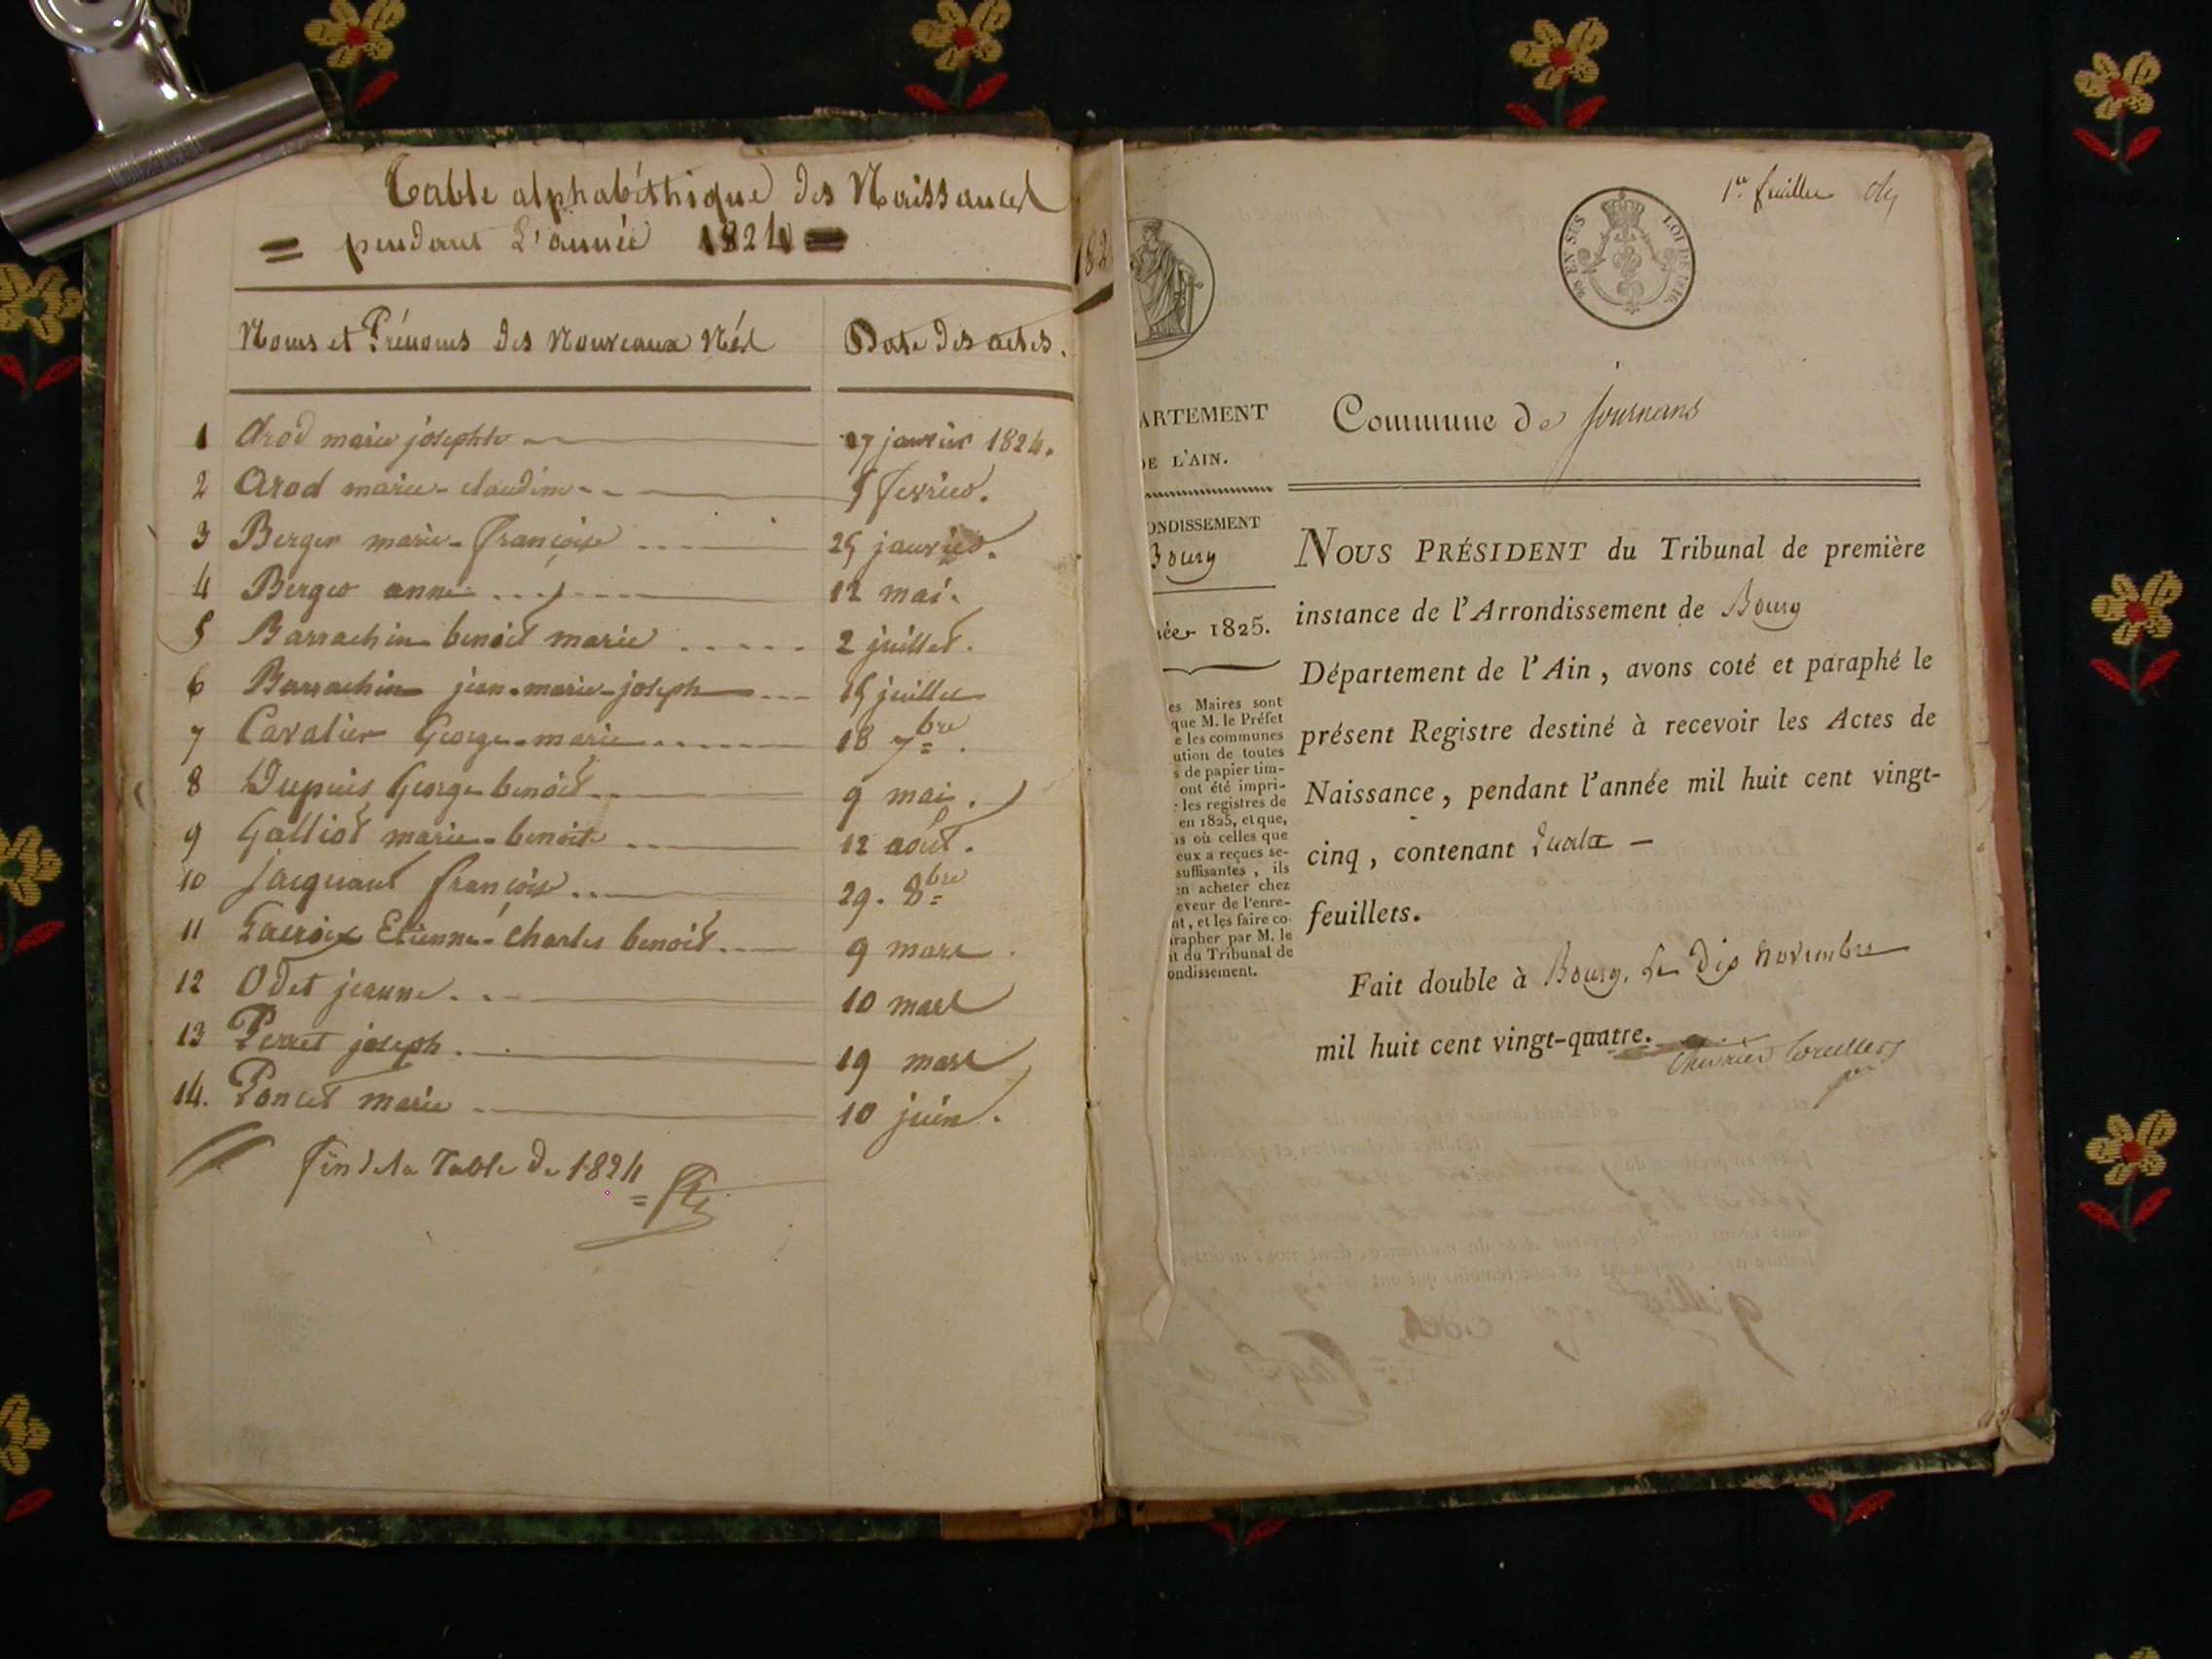 Table alphabéthique des Naissances
= pendant L'année 1824 =
Noms et Prénoms des Nouveaux Nés
Date des actes.
1 Arod marie josephte 27 janvier 1824.
2 Arod marie-claudine 5 fevrier.
3 Berger marie-françoise 25 janvier.
4 Berger anne 12 mai.
5 Barrachin benoit marie 2 juillet.
6 Barrachin jean-marie-joseph 15 juillet
7 Cavalier George-marie 18 7bre.
8 Dupuis George benoit 9 mai.
9 Galliot marie-benoite 12 août.
10 Jacquand françoise 29. 8bre
11 Lacroix Etienne-Charles benoit 9 mars.
12 Odet jeanne. 10 mars
13 Perret joseph. 19 mars
14. Poncet marie 10 juin.
fin de la Table de 1824
182
1er feuillet
EN SUS
LOI DE 1816
ARTEMENT
DE L'AIN.
ONDISSEMENT
Bourg
née 1825.
es Maires sont
que M. le Préfet
e les communes
ution de toutes
s de papier tim-
ont été impri-
les registres de
en 1825, et que,
as où celles que
eux a reçues se-
suffisantes, ils
en acheter chez
eveur de l'enre-
nt, et les faire co-
arapher par M. le
it du Tribunal de
ondissement.
Commune de Journans
NOUS PRÉSIDENT du Tribunal de première
instance de l'Arrondissement de Bourg
Département de l'Ain, avons coté et paraphé le
présent Registre destiné à recevoir les Actes de
Naissance, pendant l'année mil huit cent vingt-
cinq, contenant quatre —
feuillets.
Fait double à Bourg, le dix novembre
mil huit cent vingt-quatre.